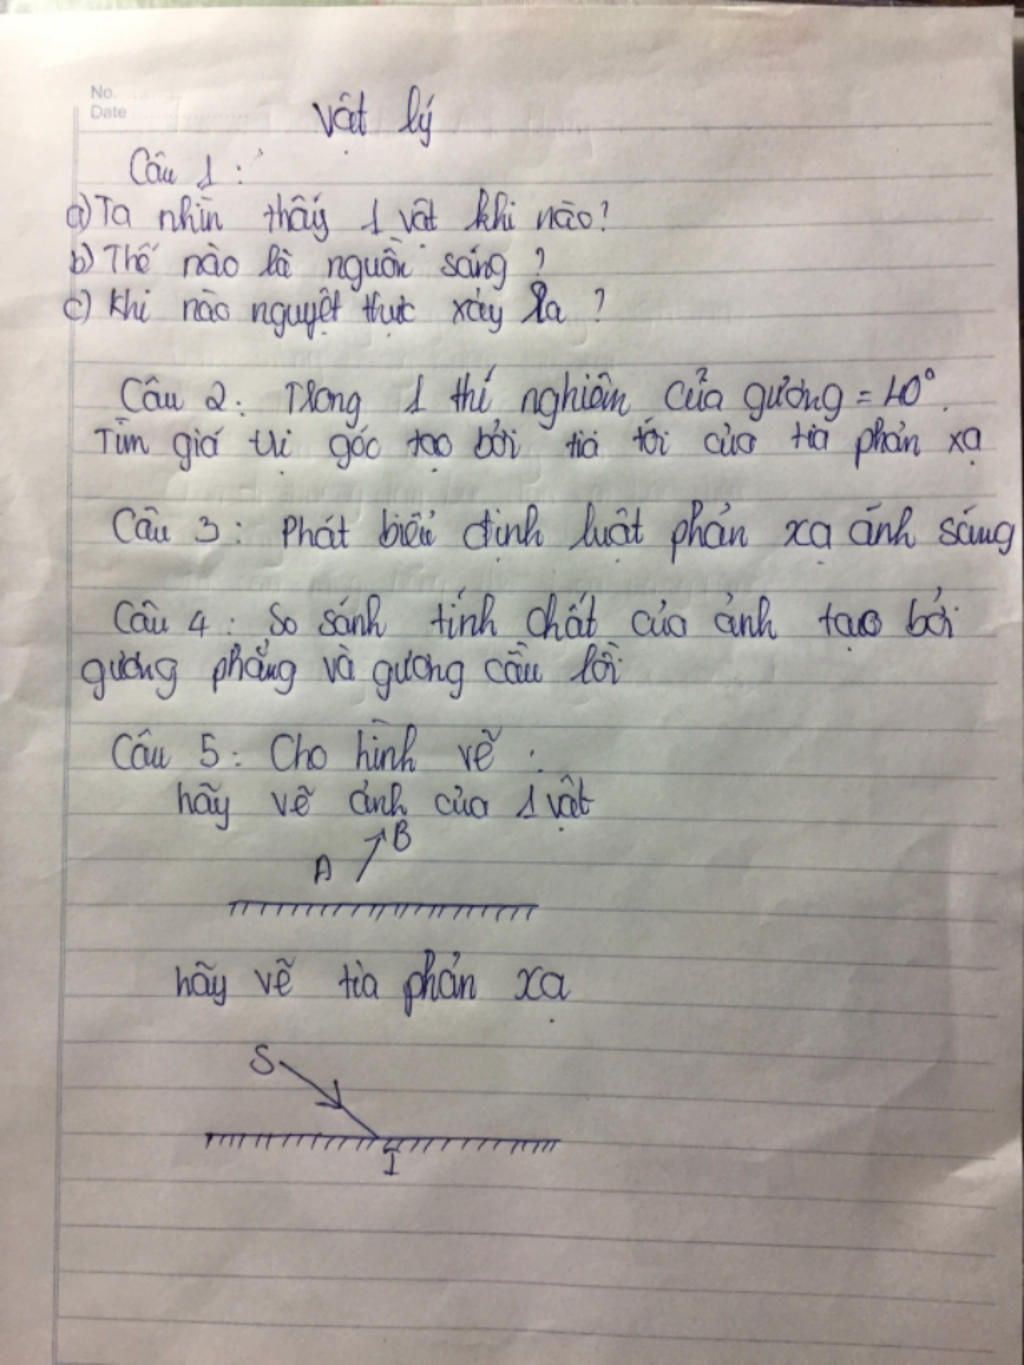 No.
Date
Vật lý
Câu 1 :
a) Ta nhìn thấy 1 vật khi nào?
b) Thế nào là nguồn sáng ?
c) Khi nào nguyệt thực xảy ra ?
Câu 2 : Trong 1 thí nghiệm của gương = 40°.
Tìm giá trị góc tạo bởi tia tới của tia phản xạ
Câu 3 : Phát biểu định luật phản xạ ánh sáng
Câu 4 : So sánh tính chất của ảnh tạo bởi
gương phẳng và gương cầu lồi
Câu 5 : Cho hình vẽ :
hãy vẽ ảnh của 1 vật
A B
hãy vẽ tia phản xạ
S
I